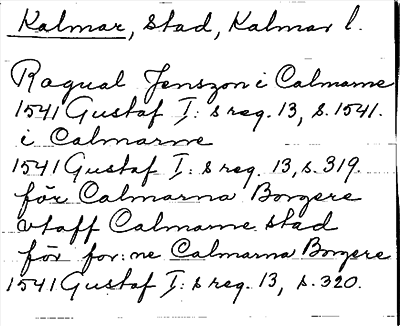 Kalmar, Stad, Kalmar l.
Ragual Jenszon i Calmarne
1541 Gustaf I: s reg. 13, s. 1541.
i Calmarne
1541 Gustaf I: s reg. 13, s. 319.
för Calmarna Borgere
vtaff Calmarne stad
för for: ne Calmarna Borgere
1541 Gustaf I: s reg. 13, s. 320.